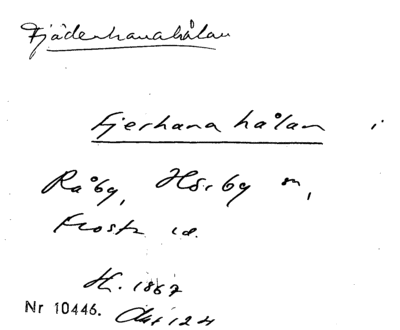 Fjäderhanahålan
Fjerhana hålan i
Råby, Hörby sn,
Frosta hd.
H. 1867
Nr 10446.